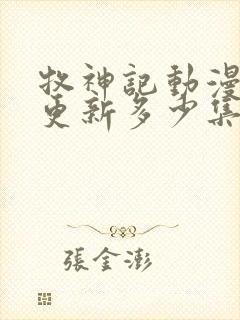 牧神記動漫
更新多少集
張金澎